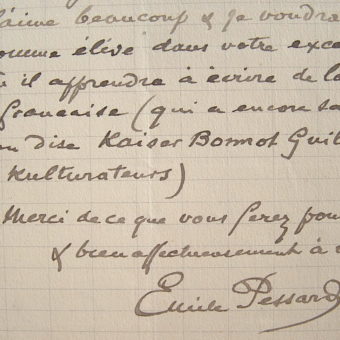 l'aime beaucoup & je voudra
omme élève dans votre exce
il apprendre à écrire de la
française (qui a encore sa
on dise Kaiser Bonnot Guil
Kulturateurs)
Merci de ce que vous ferez pour
& bien affectueusement à v
Emile Pessard